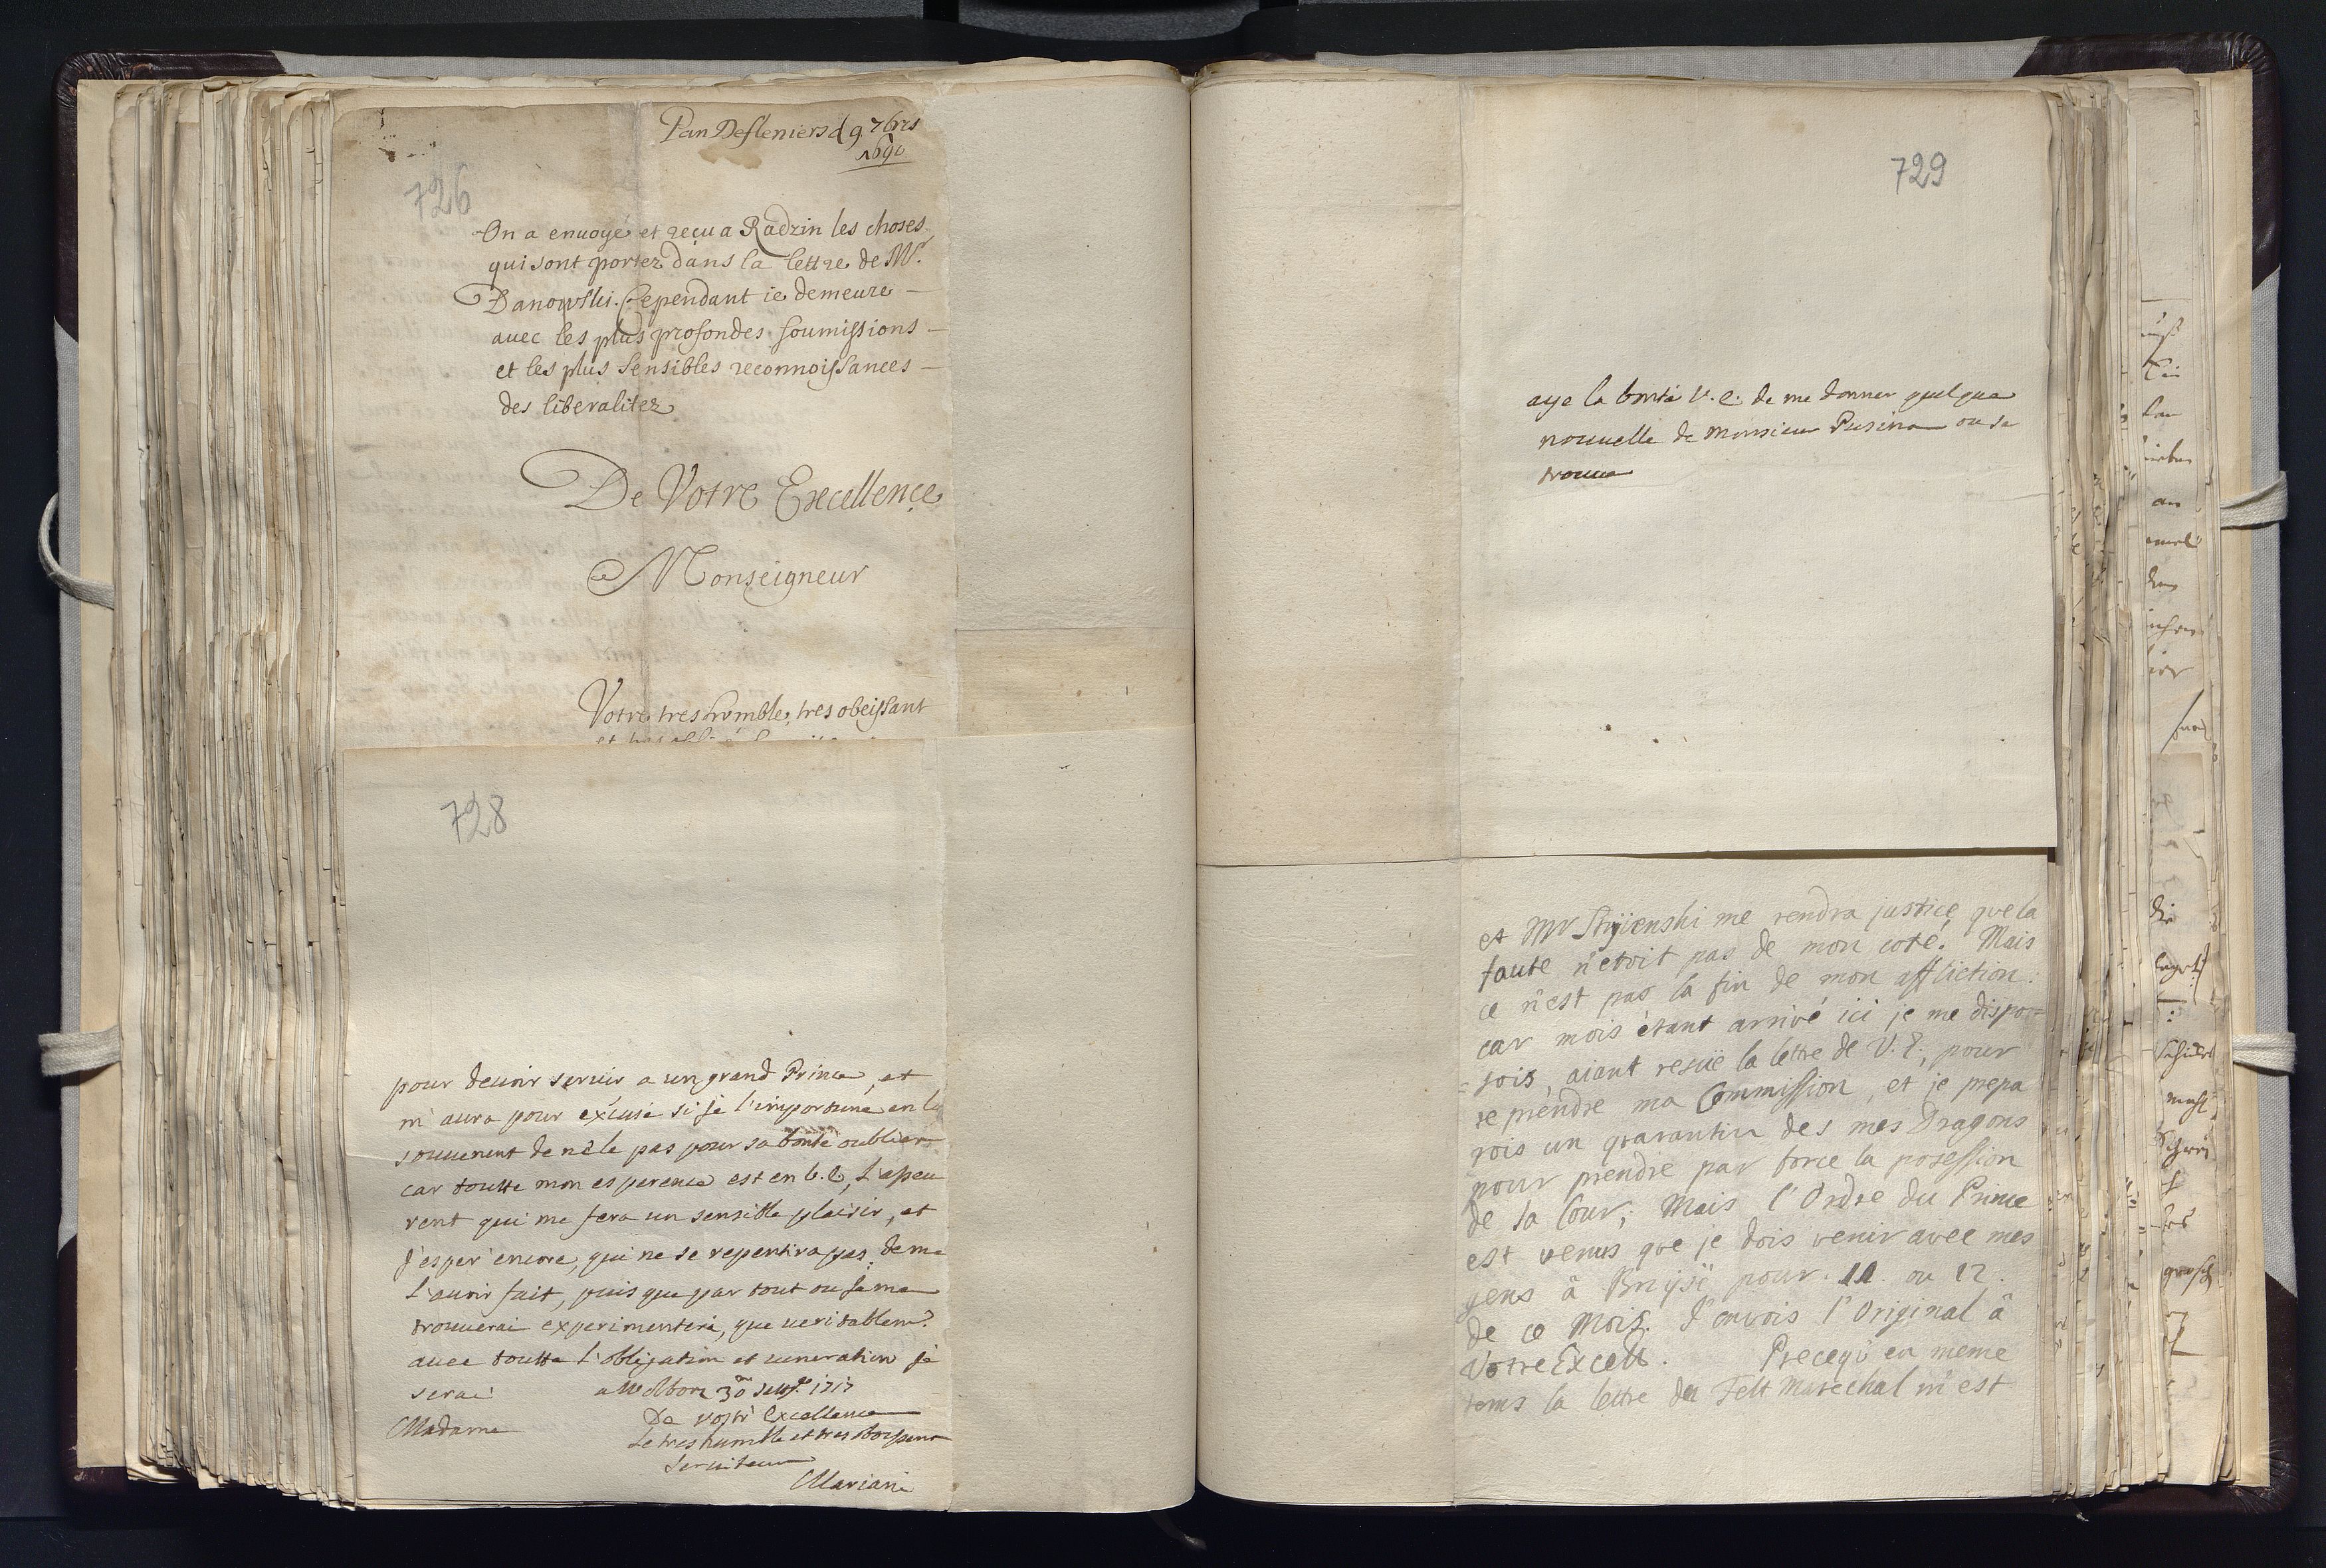 Pan Desleniers d 9 7bris
1690
726
On a enuoyé et reçu a Radzin les choses
qui sont portez dans la lettre de Mr.
Danowski. Cependant ie demeure
auec les plus profondes soumissions
et les plus sensibles reconnoissances
des liberalitez
De Votre Excellence
Monseigneur
Votre tres humble, tres obeissant
728
pour deuoir seruir a un grand Prince, et
m'aura pour excusé si je l'importune en luy
souuenent de ne le pas pour sa bonté oublier
car toutte mon esperence est en V.E,
rent qui me fera un sensible plaisir, et
j'esper encore, qui ne se repentira pas de me
l'auoir fait, puis que par tout ou je me
trouuerai experimentera, que ueritablem.t
auec toutte l'obligation et ueneration je
serai
30 1717
De vostre Excellence
Madame
Le tres humble et tres
Seruiteur
Mariani
729
aye la bonté V.E. de me donner quelque
nouuelle de Monsieur Pusina ou se
trouue
et Mr Stryienski me rendra justice, que la
faute n'etoit pas de mon coté. Mais
ce n'est pas la fin de mon affliction:
car mois étant arrivé ici je me dispo=
=sois, aiant resuë la lettre de V.E, pour
reprendre ma Commission, et je prepa
rois un qvarantin des mes Dragons
pour prendre par force la posession
de sa Cour; Mais l'Ordre du Prince
est venus qve je dois venir avec mes
gens â pour 11. ou 12.
de ce Mois. J'envois l'Original â
Votre Excell. Precequ'en meme
tems la lettre du Felt Marechal m'est